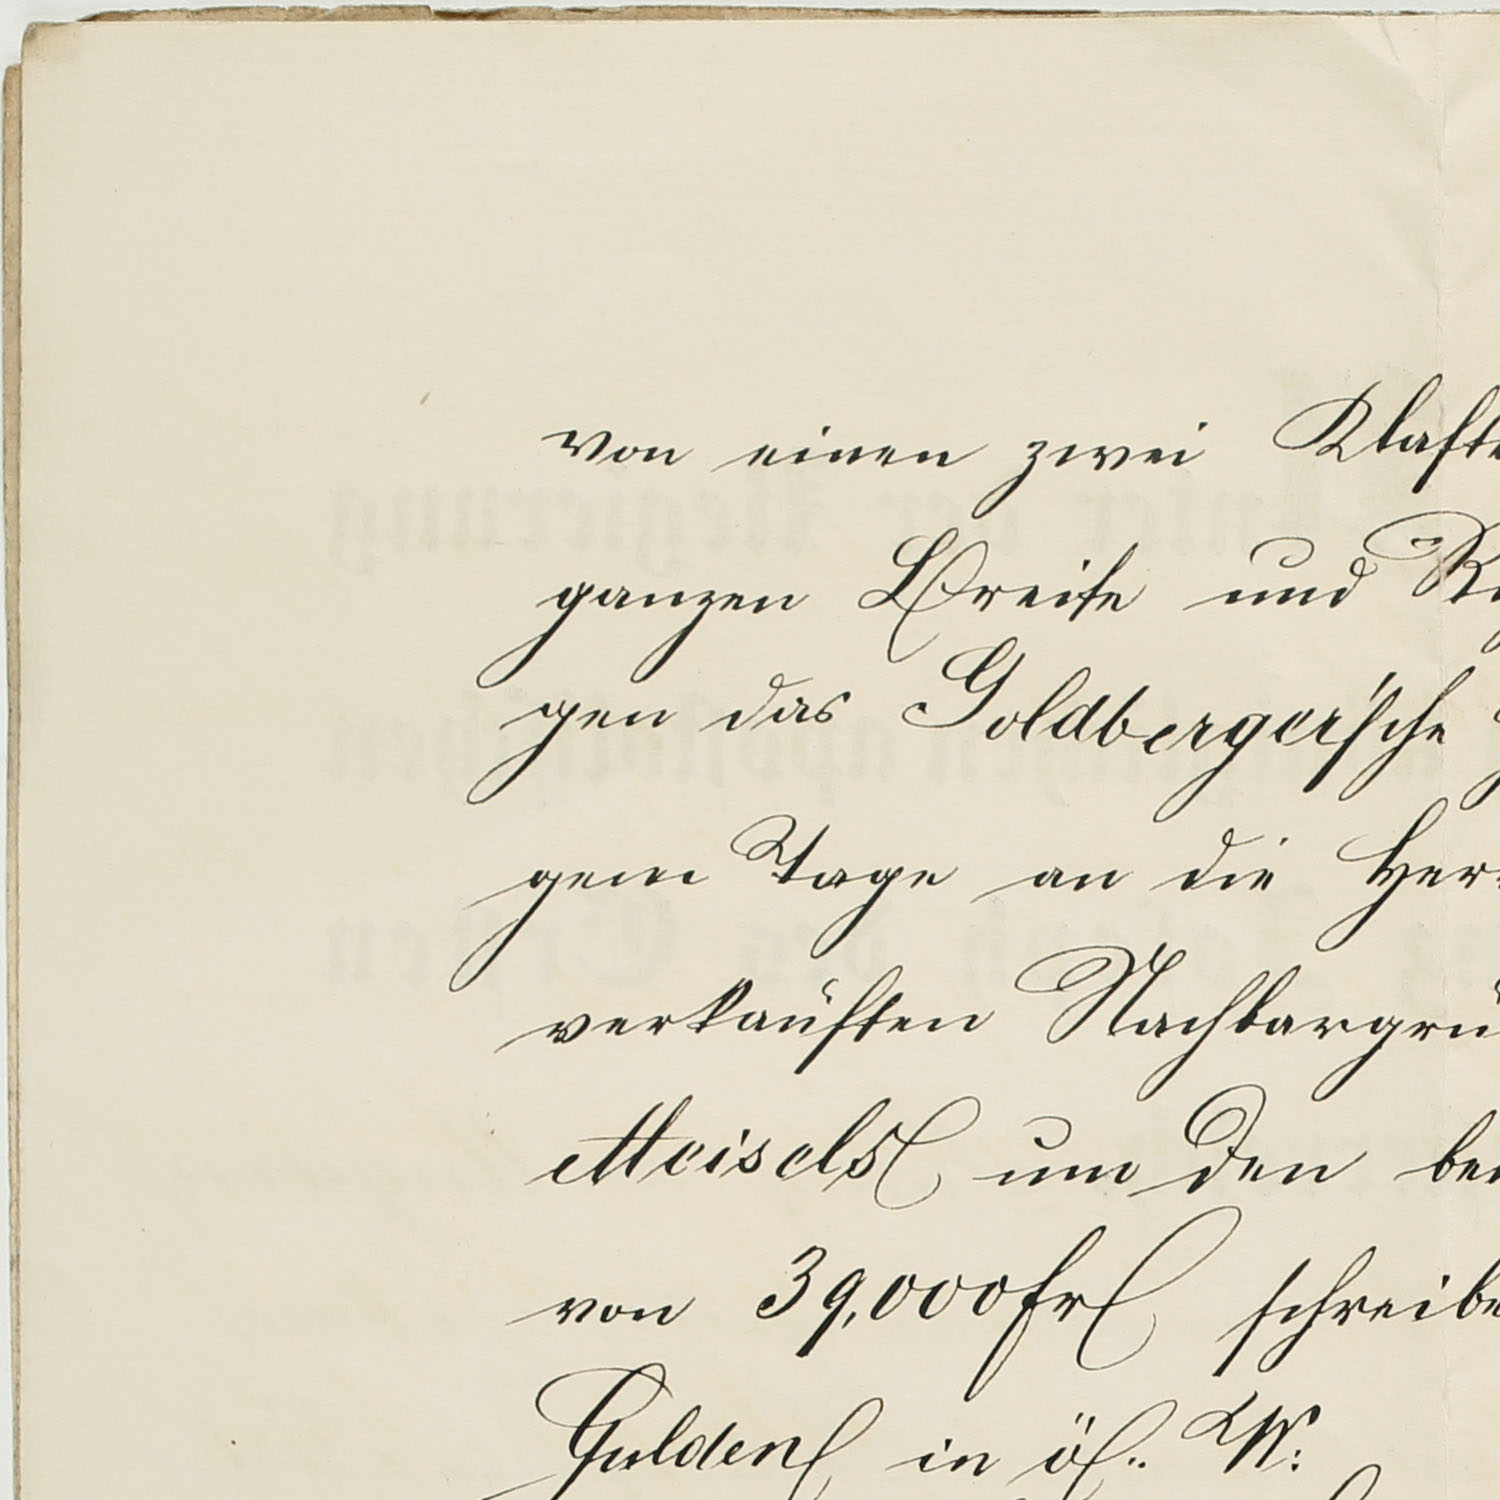 von einen zwei Klafte
ganzen Breite und
gen das Goldberger'sche
gem Tage an die Her
verkauften Nachbargrü
Meisels um den be
von 39,000 fr schreibe
Gulden in ö. W: